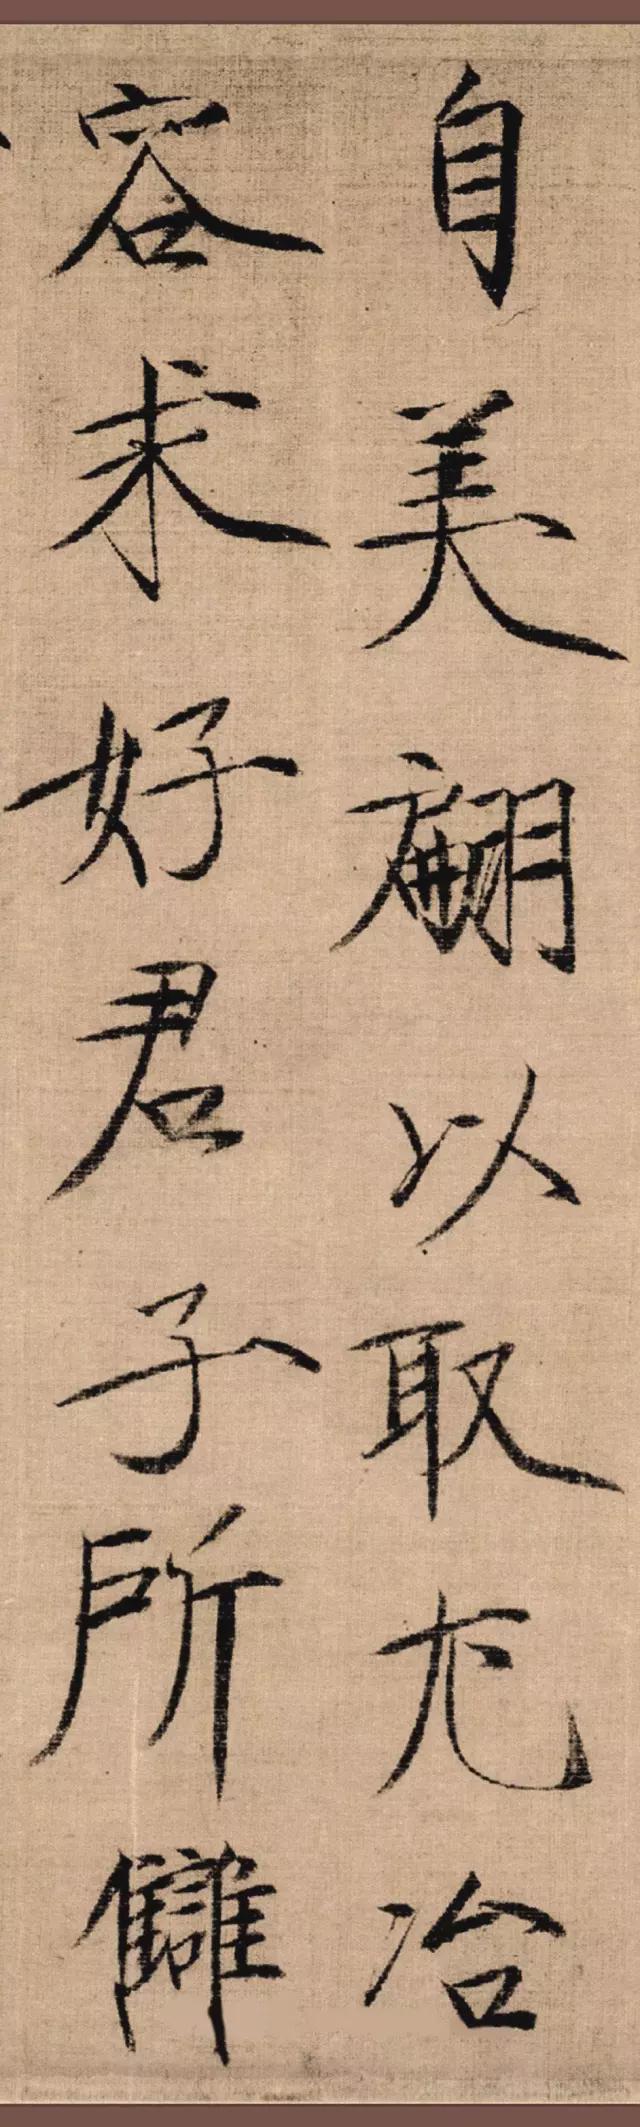 自美翩以取尤冶
容求好君子所讎